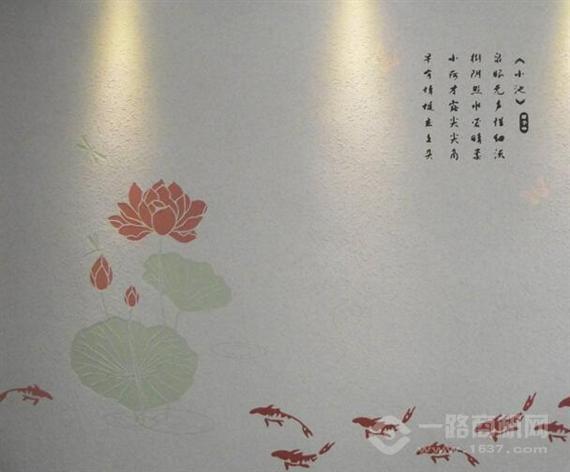 《小池》
泉眼无声惜细流
树阴照水爱晴柔
小荷才露尖尖角
早有蜻蜓立上头
一路商机网
www.1637.com